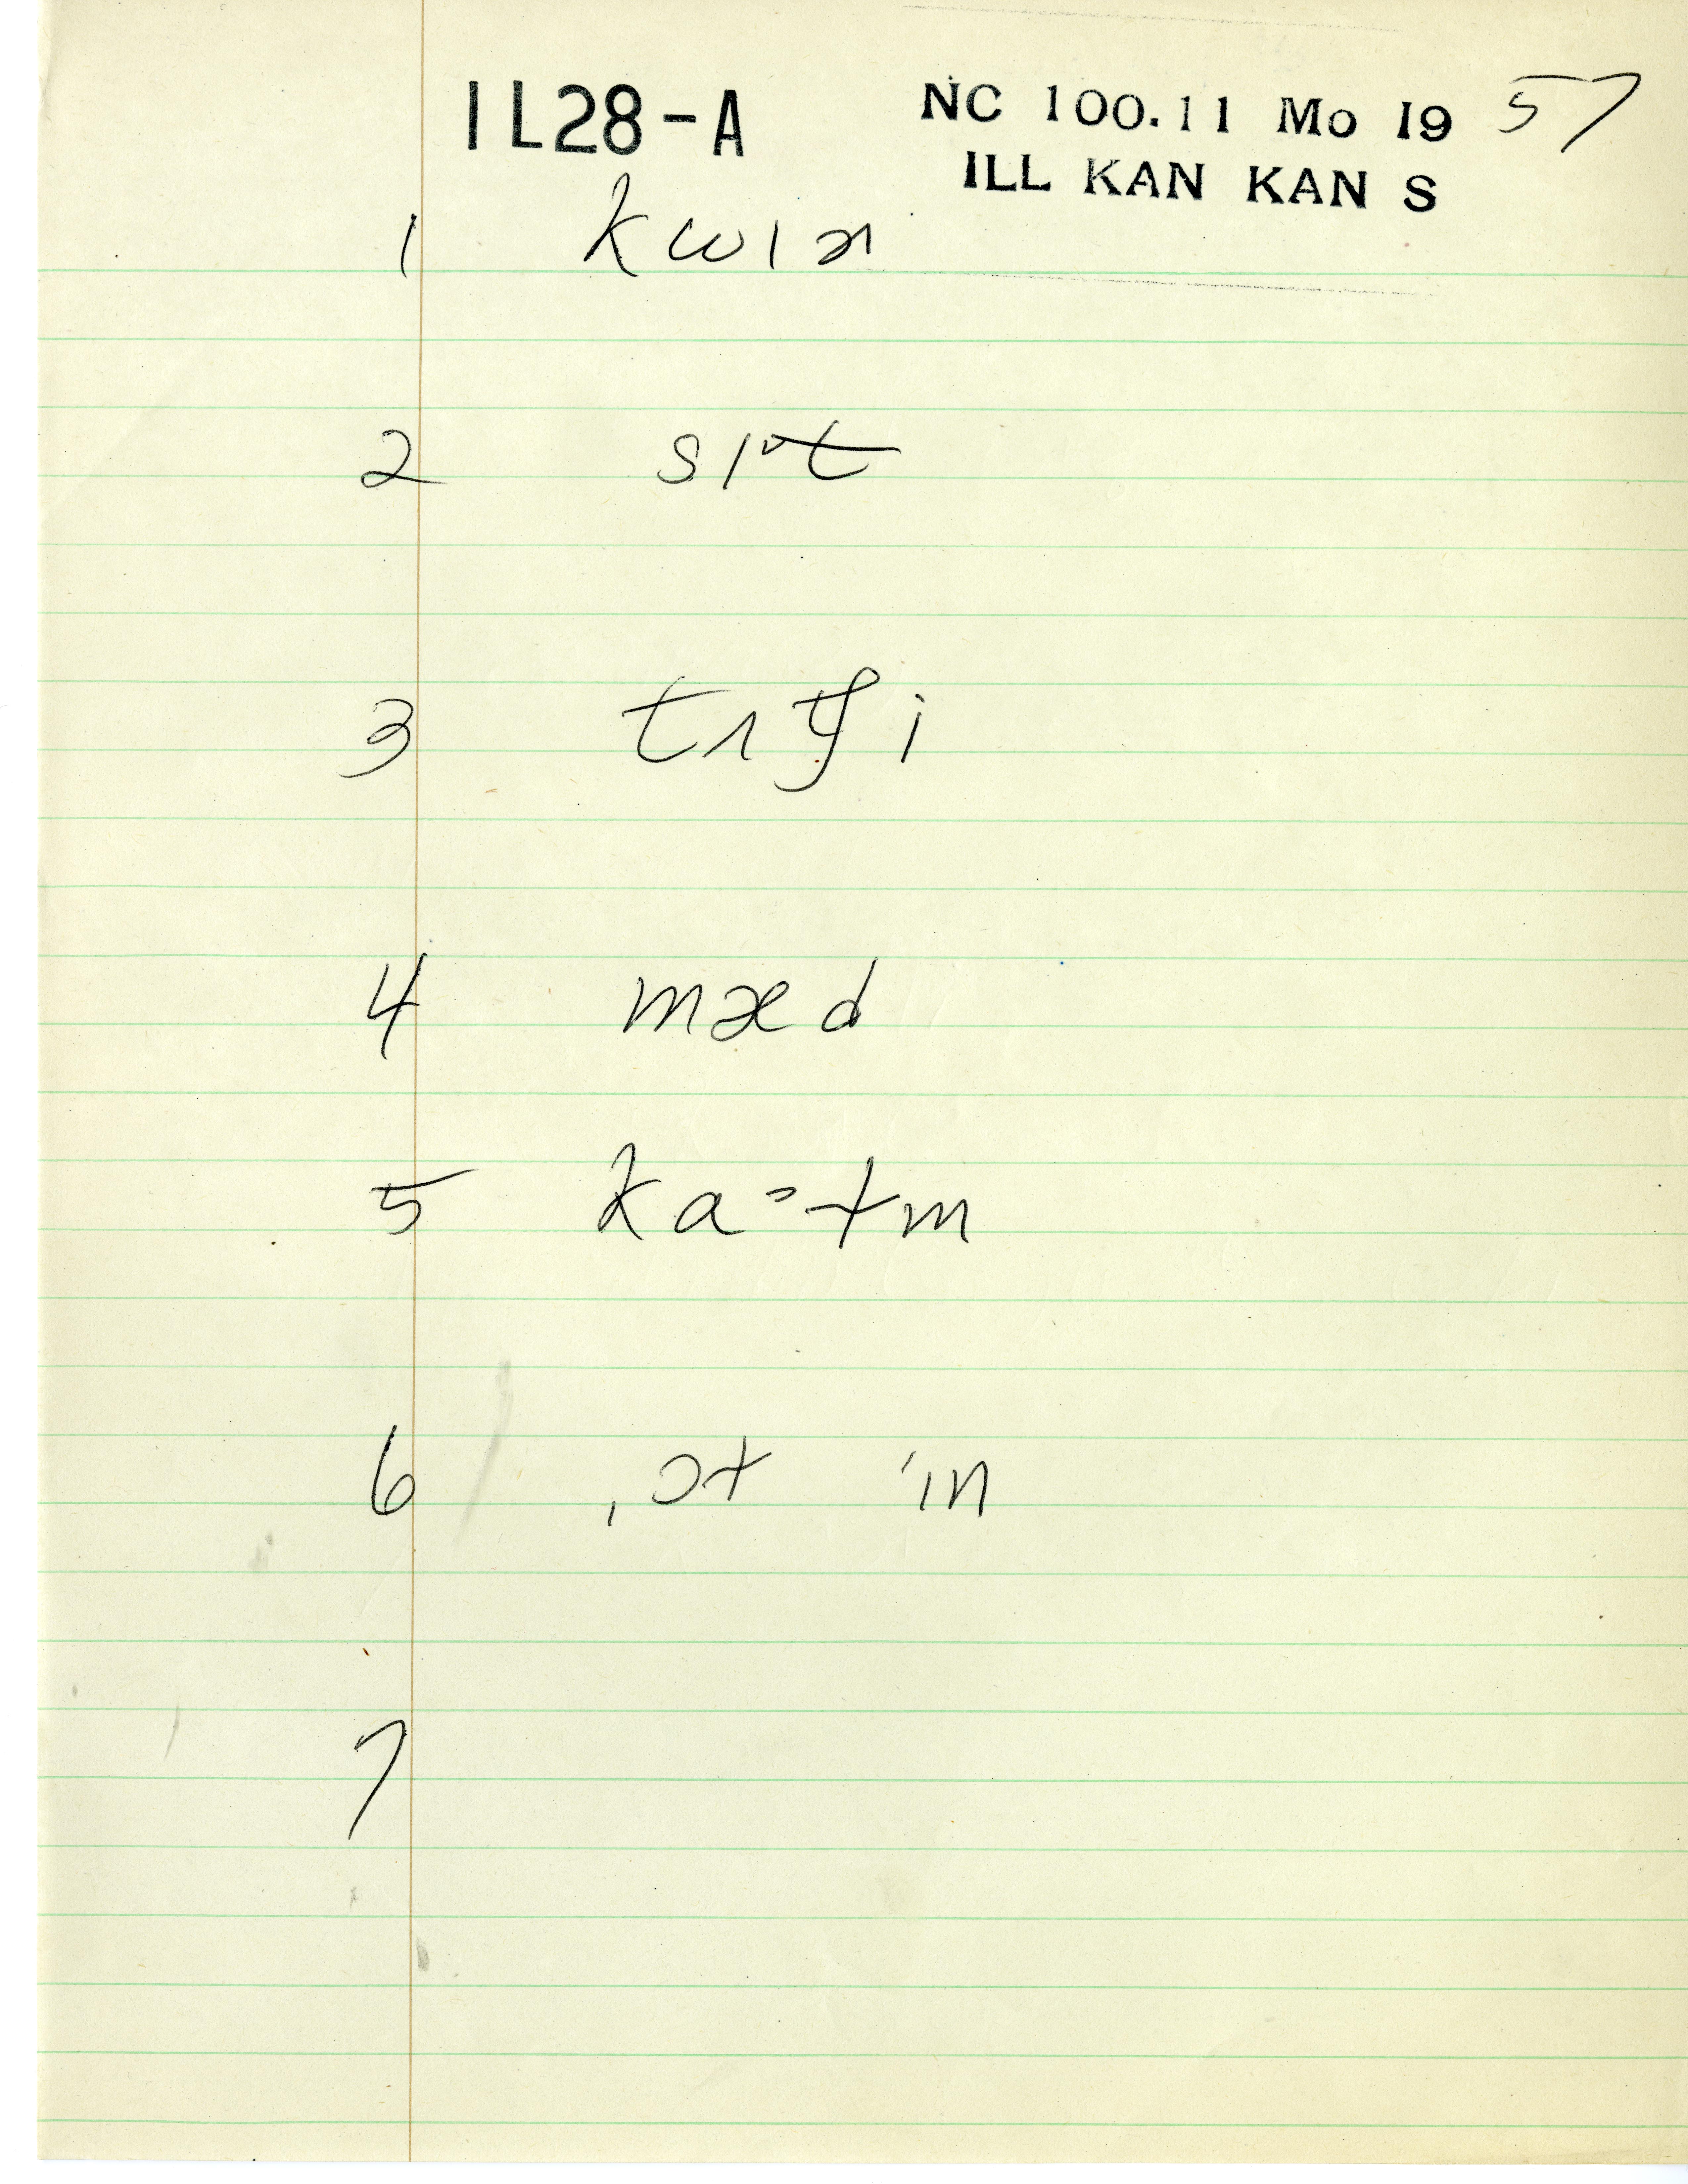 IL28-A
NC 100.11 Mo 19 57
ILL KAN KAN S
1 kwɪn
2 sɪt
3 tʌtʃi
4 mæd
5 kɑ=tm
6 ˌɔt ˈɪn
7